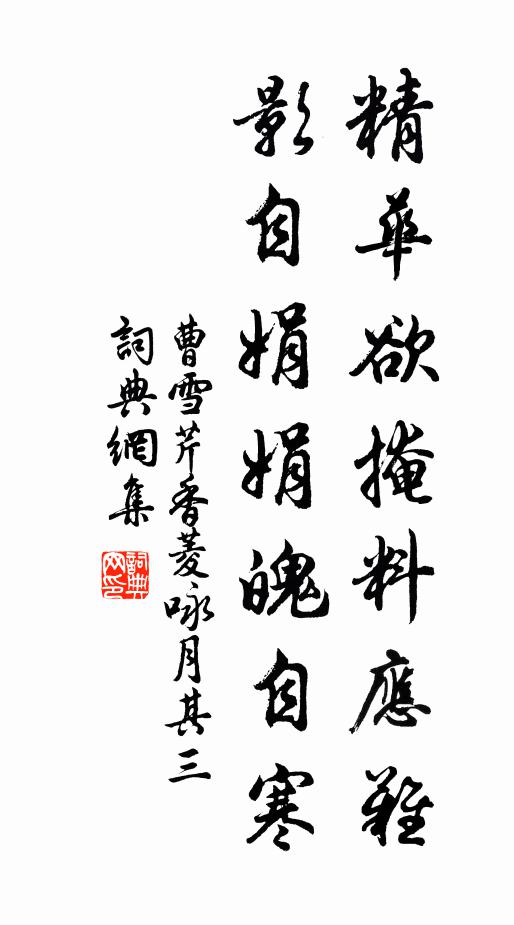 精華欲掩料應難
影自娟娟魄自寒
曹雪芹香菱咏月其三
詞典網集
詞典
网印